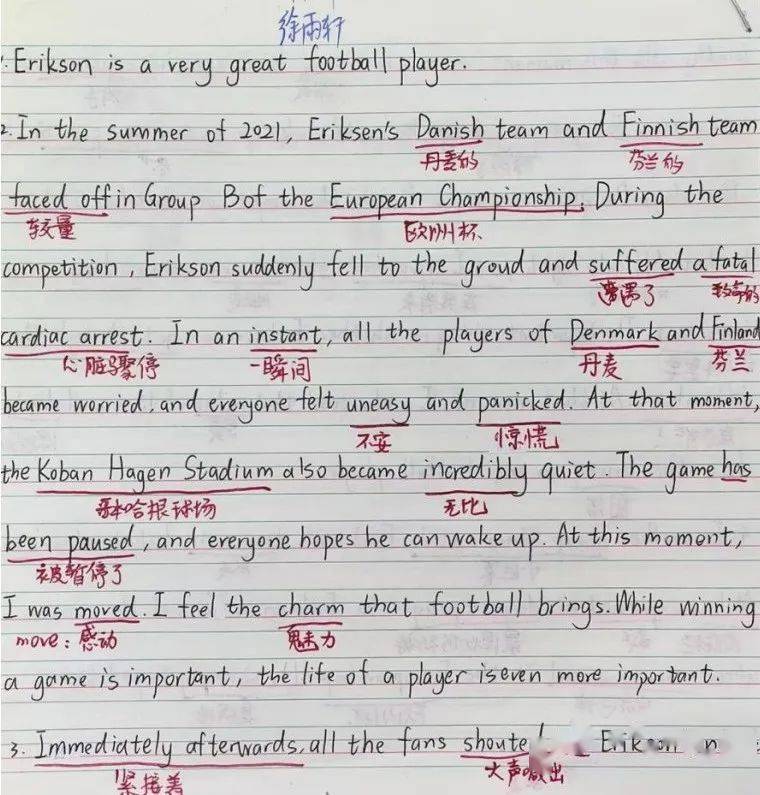 徐雨轩
1. Erikson is a very great football player.
2. In the summer of 2021, Eriksen's Danish team and Finnish team
丹麦的 芬兰的
faced off in Group B of the European Championship. During the
较量 欧洲杯
competition, Erikson suddenly fell to the groud and suffered a fatal
遭遇了 致命的
cardiac arrest. In an instant, all the players of Denmark and Finland
心脏骤停 一瞬间 丹麦 芬兰
became worried, and everyone felt uneasy and panicked. At that moment,
不安 惊慌
the Koban Hagen Stadium also became incredibly quiet. The game has
哥本哈根球场 无比
been paused, and everyone hopes he can wake up. At this moment,
被暂停了
I was moved. I feel the charm that football brings. While winning
move: 感动 魅力
a game is important, the life of a player is even more important.
3. Immediately afterwards, all the fans
紧接着 大声喊出